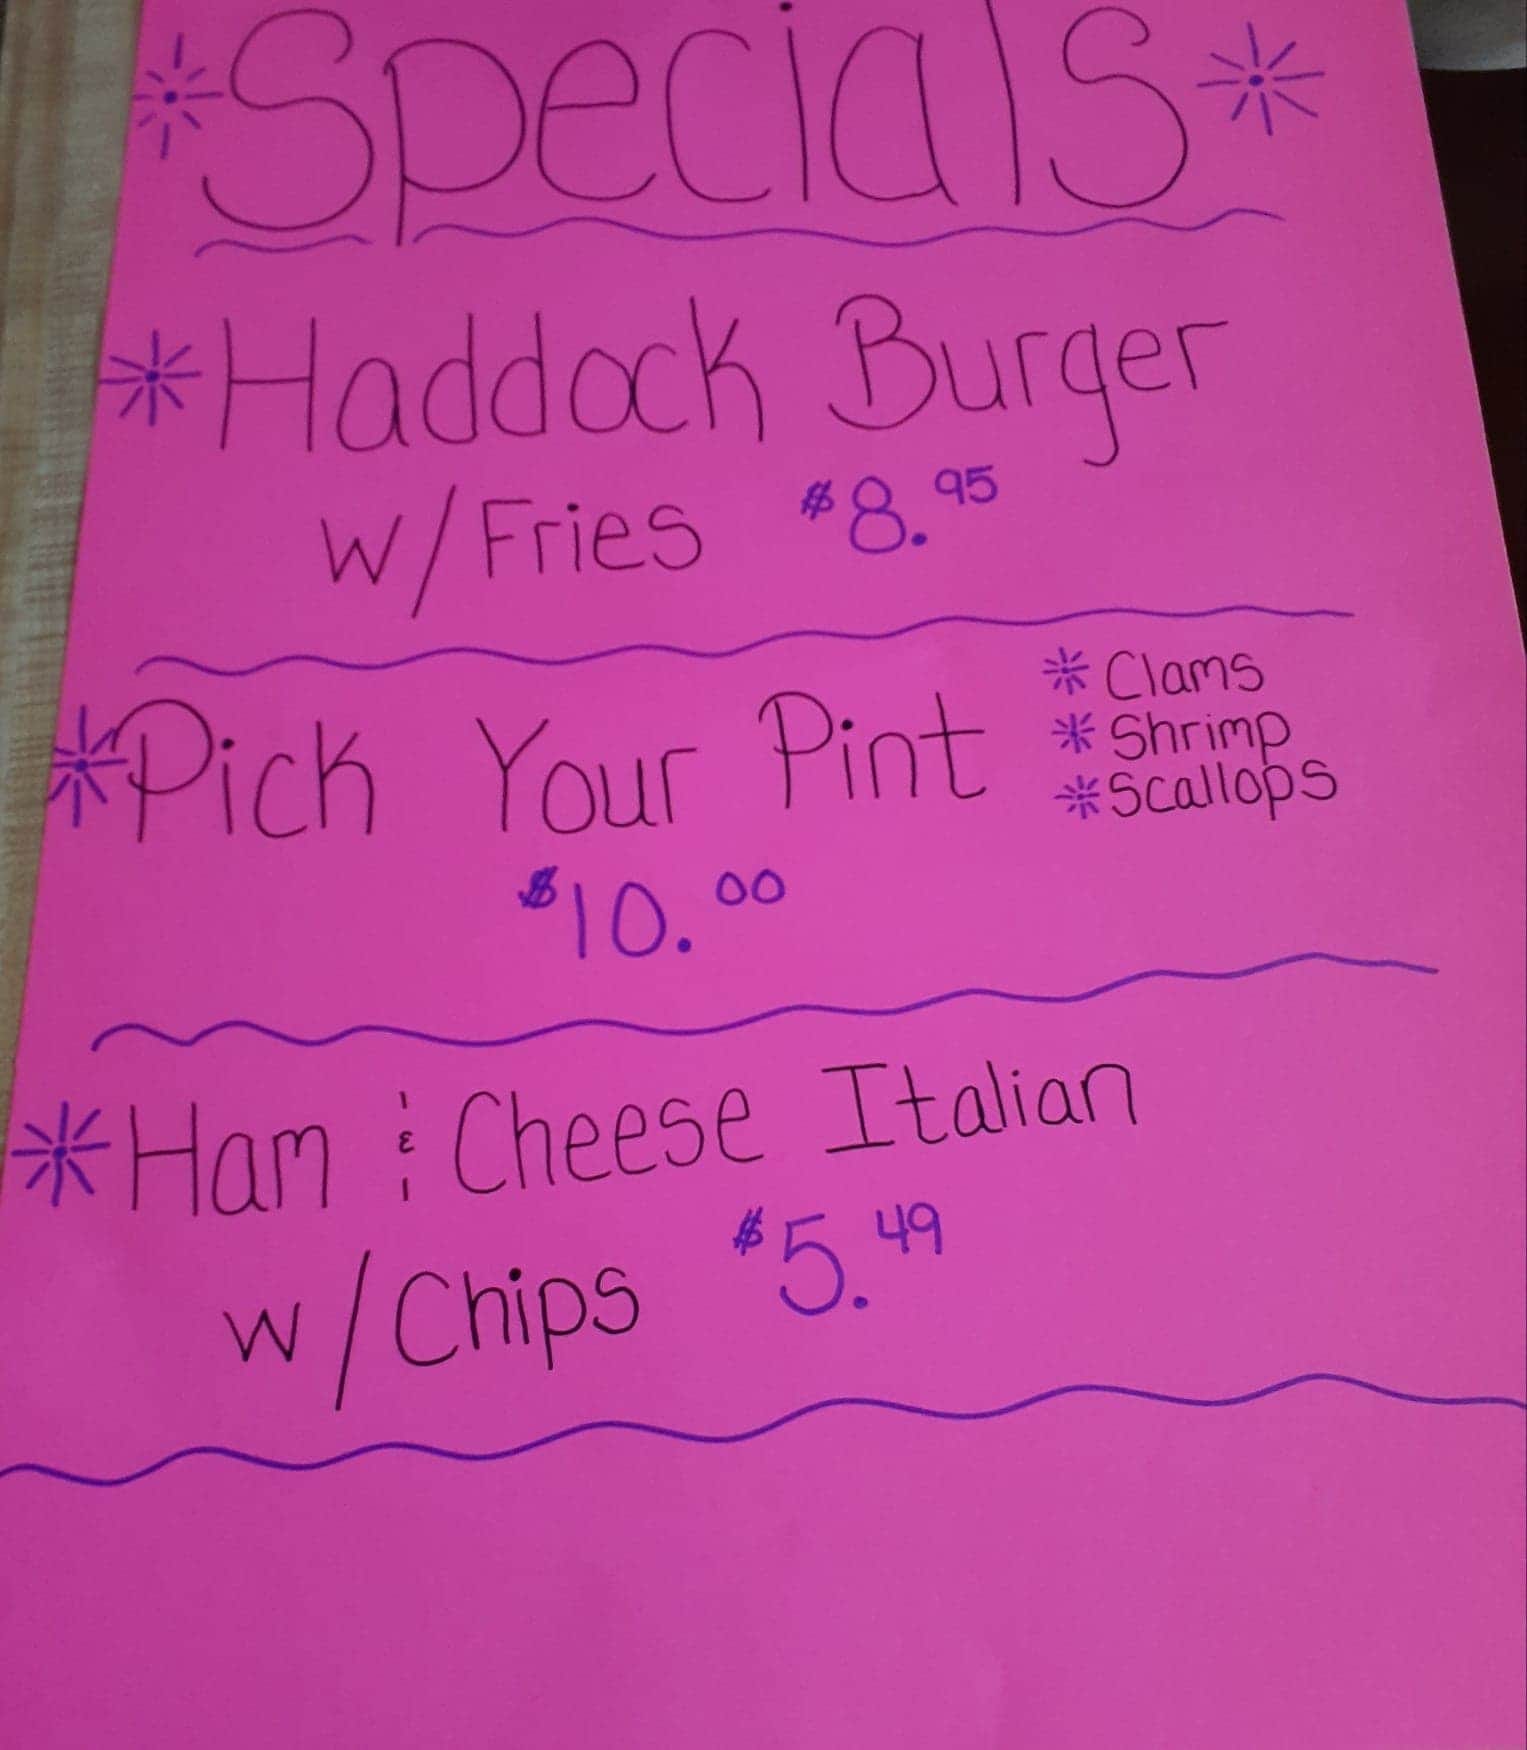 Specials
Haddock Burger
w/Fries $8.95
Pick Your Pint
Clams
Shrimp
Scallops
$10.00
Ham & Cheese Italian
w/Chips $5.49